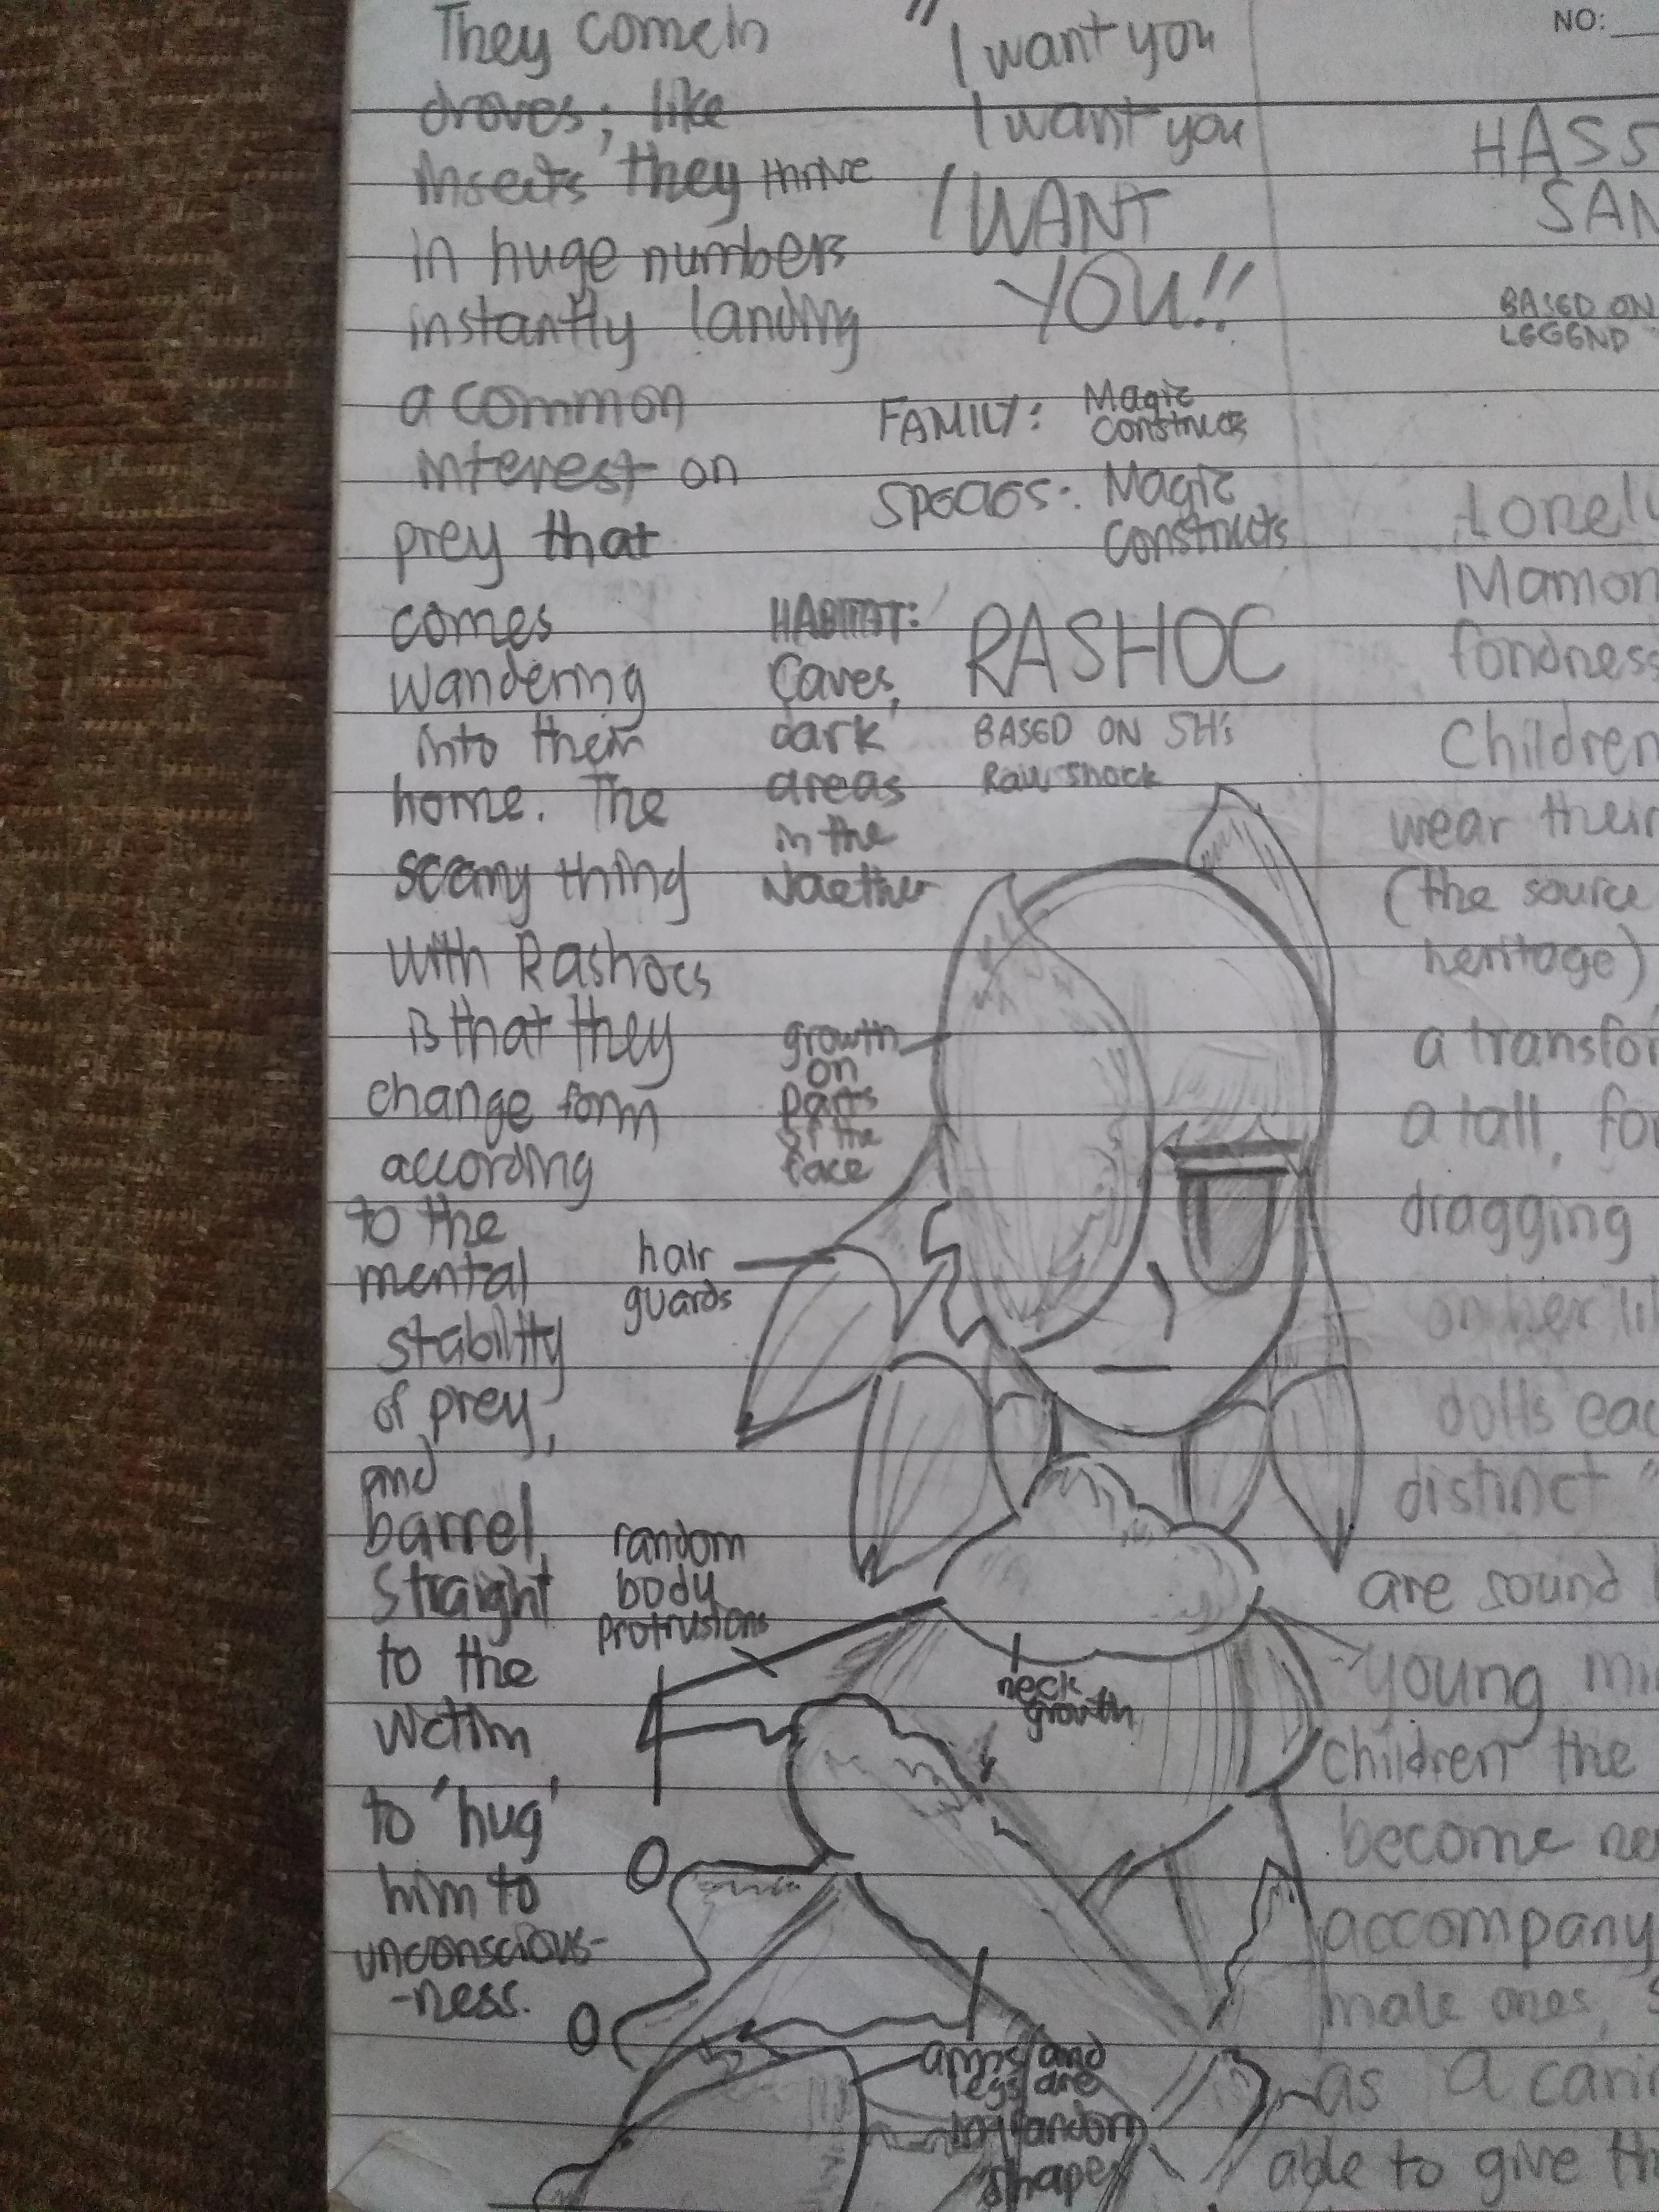 They come in
droves; like
insects they thrive
in huge numbers
instantly landing
a common
interest on
prey that
comes
wandering
into their
home. The
scary thing
with Rashocs
is that they
change form
according
to the
mental
stability
of prey,
and
barrel
straight
to the
victim
to 'hug'
him to
unconscious-
-ness.
"I want you
I want you
I WANT
YOU!!
FAMILY: Magic
Constructs
SPECIES: Magic
Constructs
HABITAT:
Caves,
dark
areas
in the
RASHOC
BASED ON SH's
Raw Shock
growth
on
parts
of the
face
hair
guards
random
body
protrusions
neck
growth
arms and
legs are
in random
shapes
NO:
HASS
SAN
BASED ON
LEGEND
Lonel
Mamon
fondness
Children
wear their
(the source
heritage)
a transfor
a tall, fo
dragging
on her li
dolls eac
distinct "
are sound
young mi
children the
become ne
accompany
male ones, s
as a cari
able to give th